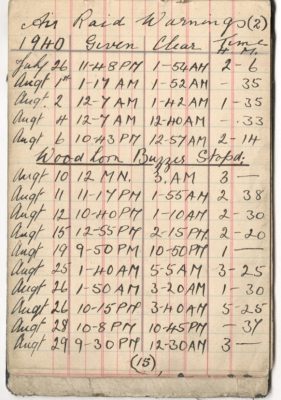 Air Raid Warnings (2)
1940 Given Clear Time
H M.
July 26 11-48PM 1-54AM 2-6
Augt 1st 1-17AM 1-52AM - 35
Augt. 2 12-7AM 1-42AM 1-35
Augt 4 12-7AM 12-40AM - .33
Augt 6 10-43PM 12-57AM 2-14
Buzzer Stopd.
Augt 10 12 M.N. 3.AM 3 —
Augt 11 11-17PM 1-55AM 2 38
Augt 12 10-40PM 1-10AM 2-30
Augt 15 12-55PM 2-15PM 2-20
Augt 19 9-50PM 10-50PM 1 —
Augt 25 1-40AM 5-5AM 3-25
Augt 26 1-50AM 3-20AM 1-30
Augt 26 10-15PM 3-40AM 5-25
Augt 28 10-8PM 10-45PM - 37
Augt 29 9-30PM 12-30AM 3 —
(15)